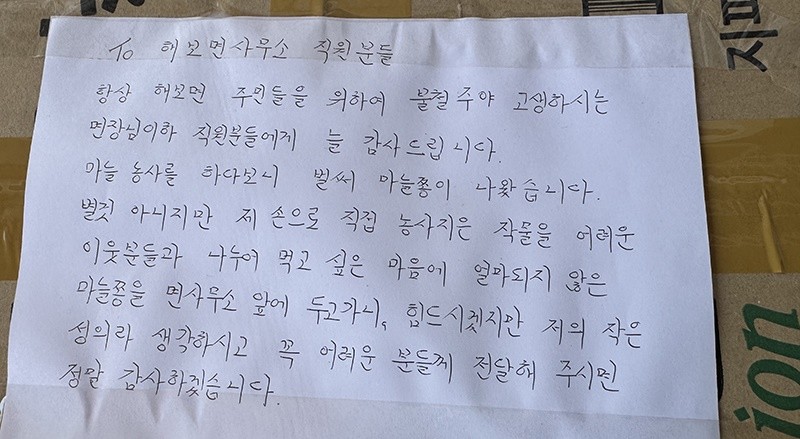 To 해보면사무소 직원분들
항상 해보면 주민들을 위하여 불철주야 고생하시는
면장님이하 직원분들에게 늘 감사드립니다.
마늘 농사를 하다보니 벌써 마늘쫑이 나왔습니다.
별것 아니지만 제 손으로 직접 농사지은 작물을 어려운
이웃분들과 나누어 먹고 싶은 마음에 얼마되지 않은
마늘쫑을 면사무소 앞에 두고가니, 힘드시겠지만 저의 작은
성의라 생각하시고 꼭 어려운 분들께 전달해 주시면
정말 감사하겠습니다.
ion